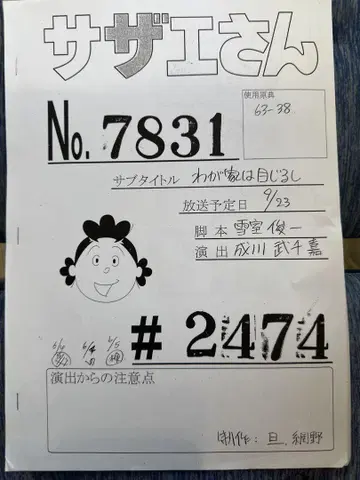 サザエさん
使用原典
63-38
No. 7831
サブタイトル わが家は目じるし
放送予定日 9/23
脚本 雪室俊一
演出 成川武千嘉
6/4 6/5
# 2474
演出からの注意点
制作: 旦、網野